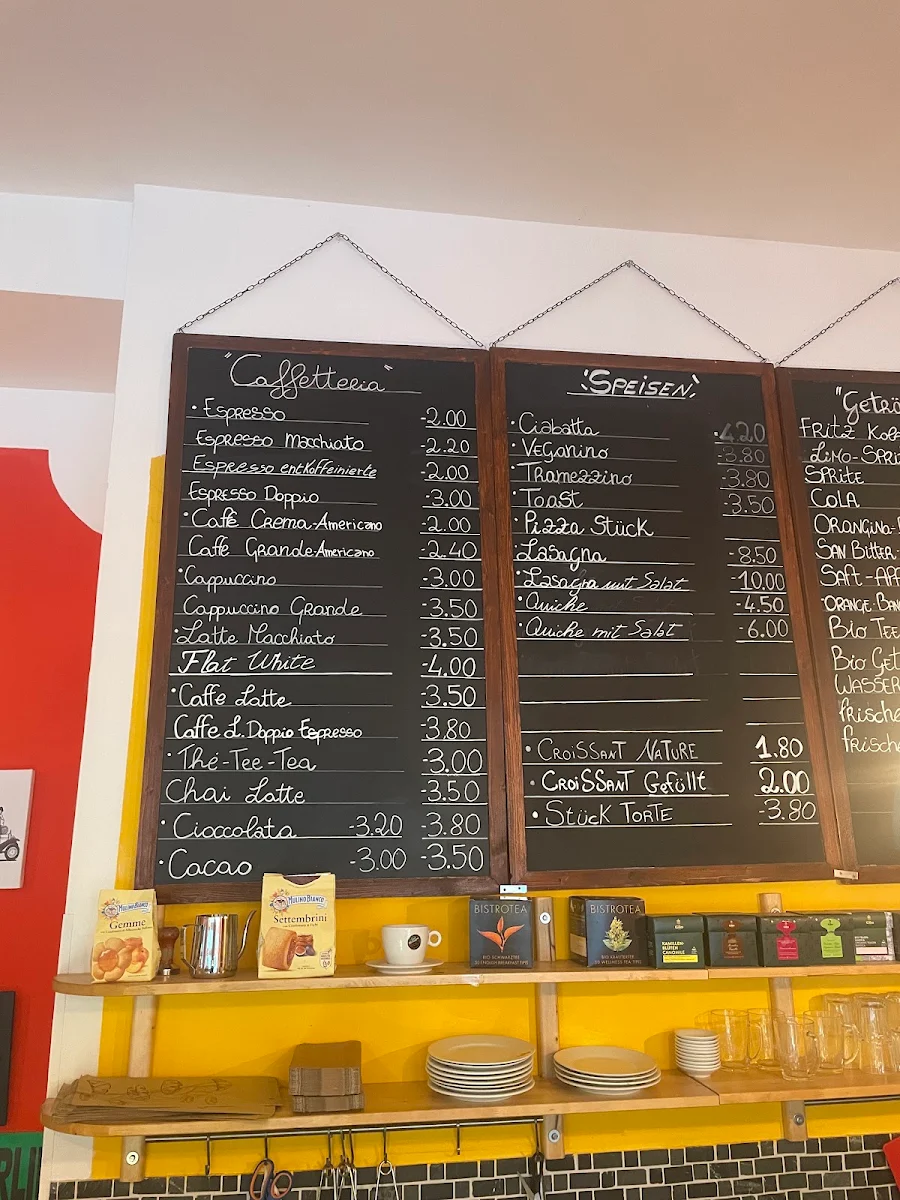 "Caffetteria"
• Espresso -2.00
Espresso Macchiato -2.20
Espresso entkoffeinierte -2.00
Espresso Doppio -3.00
• Caffè Crema-Americano -2.00
Caffè Grande-Americano -2.40
• Cappuccino -3.00
Cappuccino Grande -3.50
• Latte Macchiato -3.50
Flat White -4.00
• Caffe Latte -3.50
Caffe L. Doppio Espresso -3.80
• Thé-Tee-Tea -3.00
Chai Latte -3.50
• Cioccolata -3.20 -3.80
• Cacao -3.00 -3.50
"Speisen"
• Ciabatta -4.20
• Veganino -3.80
• Tramezzino -3.80
• Toast -3.50
• Pizza Stück
• Lasagna -8.50
• Lasagna mit Salat -10.00
• Quiche -4.50
• Quiche mit Salat -6.00
• Croissant Nature 1.80
• Croissant Gefüllt 2.00
• Stück Torte -3.80
"Geträ
Fritz Kol
Limo-Spri
Sprite
Cola
Orangina-
San Bitter-
Saft-Apf
Orange-Ban
Bio Tee
Bio Get
Wasser
Frische
Frische
Mulino Bianco
Gemme
Mulino Bianco
Settembrini
BISTROTEA
BIO SCHWARZTEE
BISTROTEA
BIO KRÄUTERTEE
KAMILLEN-
BLÜTEN
CAMOMILE
RLI